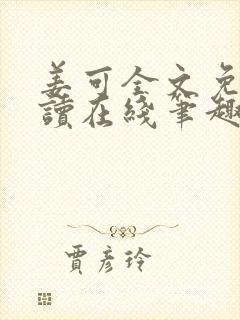 姜可全文免
讀在綫筆趣
賈彦玲